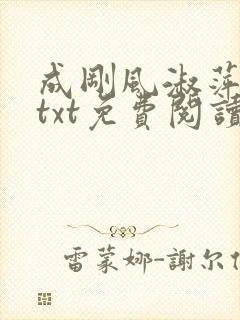 成剛風淑萍
txt免費閱讀
雷蒙娜-謝尔